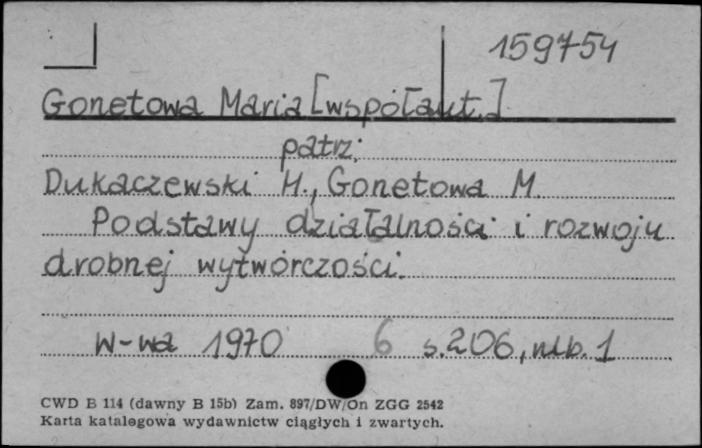 159754
Gonetowa Maria [współaut.]
patrz:
Dukaczewski H., Gonetowa M.
Podstawy działalności i rozwoju
drobnej wytwórczości.
W-wa 1970 6 s.206, nlb. 1
CWD B 114 (dawny B 15b) Zam. 897/DW/On ZGG 2542
Karta katalogowa wydawnictw ciągłych i zwartych.